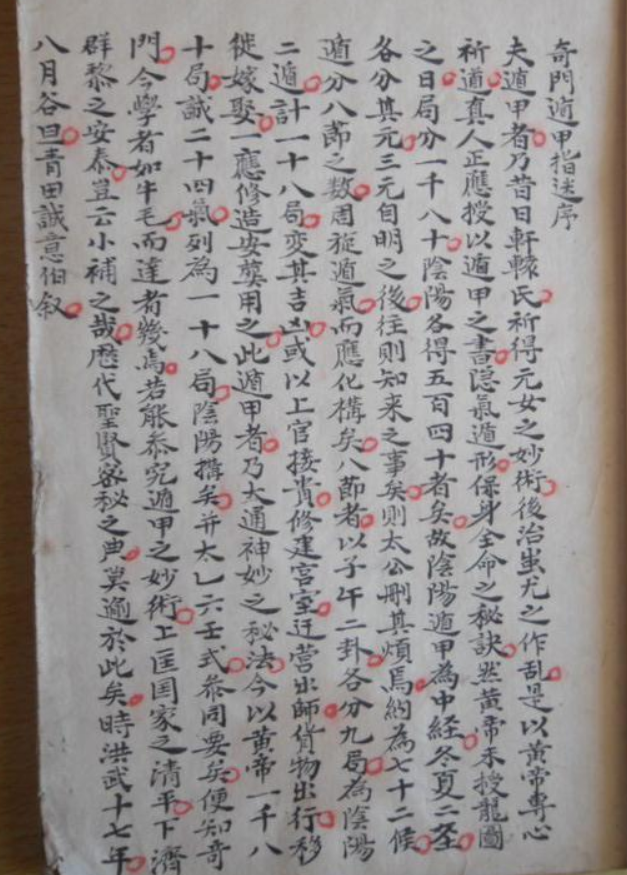 奇門遁甲指迷序
夫遁甲者乃昔日軒轅氏祈得元女之妙術後治蚩尤之作乱是以黄帝專心
祈道真人正應授以遁甲之書隐氣遁形保身全命之秘訣然黄帝未授龍圖
之日局分一千八十陰陽各得五百四十者矣故陰陽遁甲為中経冬夏二至
各分其元三元自明之後往則知来之事矣則太公刪其煩焉約為七十二候
遁分八節之数周旋遁氣而應化構矣八節者以子午二卦各分九局為陰陽
二遁計一十八局変其吉凶或以上官接貴修建宫室迁营出師貨物出行移
徙嫁娶一應修造安塟用之此遁甲者乃大通神妙之秘法今以黄帝一千八
十局誠二十四氣列為一十八局陰陽搆矣并太乙六壬式叅同要矣便知竒
門今學者如牛毛而達者幾焉若能叅究遁甲之妙術上匡囯家之清平下濟
群黎之安泰豈云小補之哉歷代聖賢宻秘之典莫逾於此矣時洪武十七年
八月谷旦青田誠意伯叙